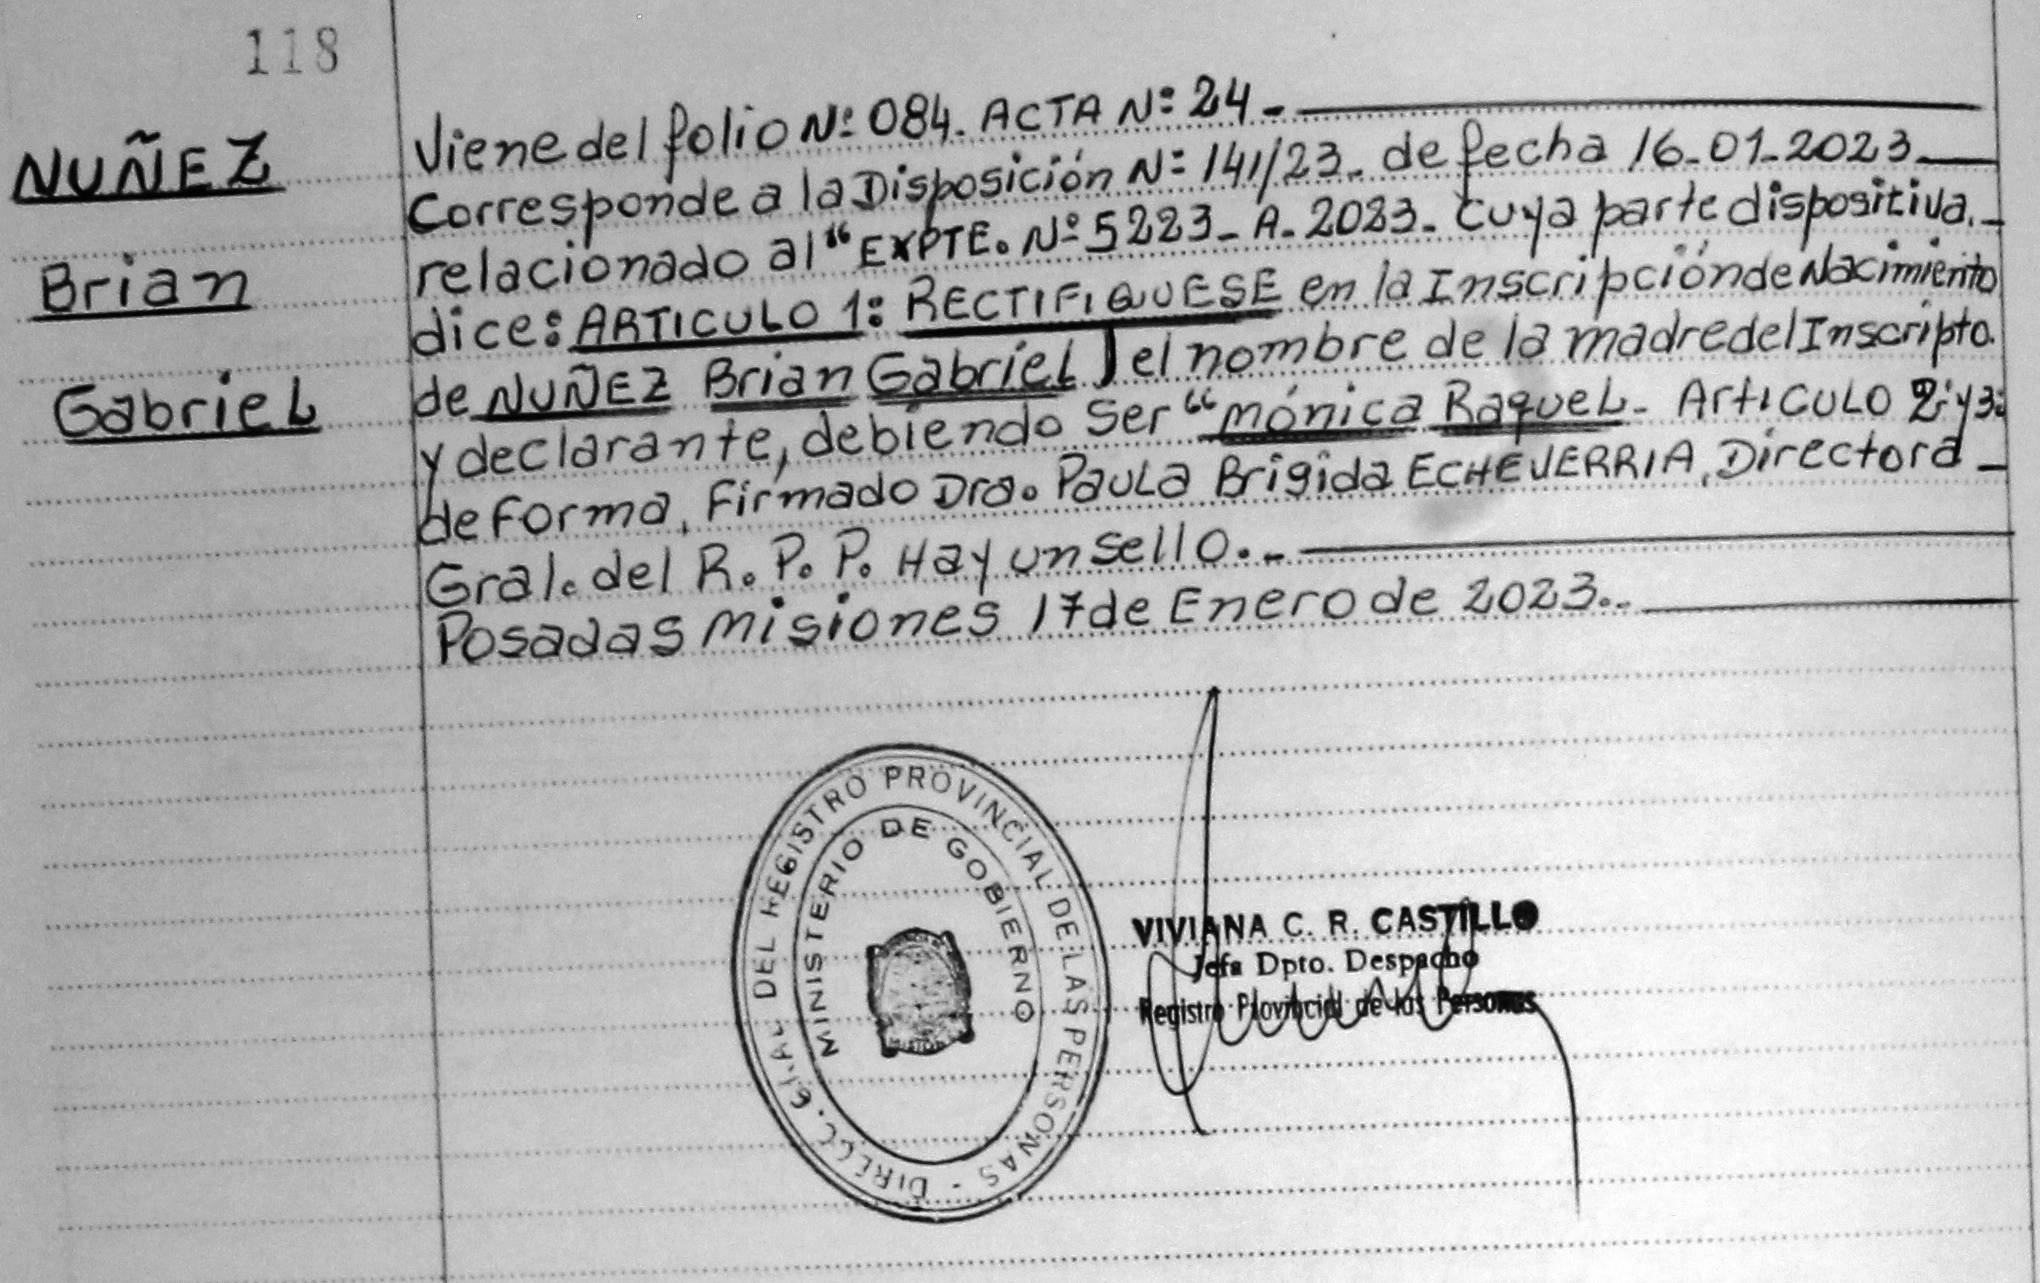 118
NUÑEZ
Brian
Gabriel
Viene del folio Nº 084. ACTA Nº 24 -
Corresponde a la Disposición Nº 141/23. de fecha 16-01-2023
relacionado al “EXPTE. Nº 5223- A- 2023. Cuya parte dispositiva. -
dice: ARTICULO 1: RECTIFIQUESE en la Inscripción de Nacimiento
de NUÑEZ Brian Gabriel) el nombre de la madre del Inscripto.
y declarante, debiendo ser “Mónica Raquel- Articulo 2º y 3º
de forma, Firmado Dra. Paula Brigida ECHEVERRIA, Directora -
Gral. del R. P. P. Hay un sello. -
Posadas Misiones 17 de Enero de 2023..
DIRECC. GRAL. DEL REGISTRO PROVINCIAL DE LAS PERSONAS -
MINISTERIO DE GOBIERNO
VIVIANA C. R. CASTILLO
Jefa Dpto. Despacho
Registro Provincial de las Personas